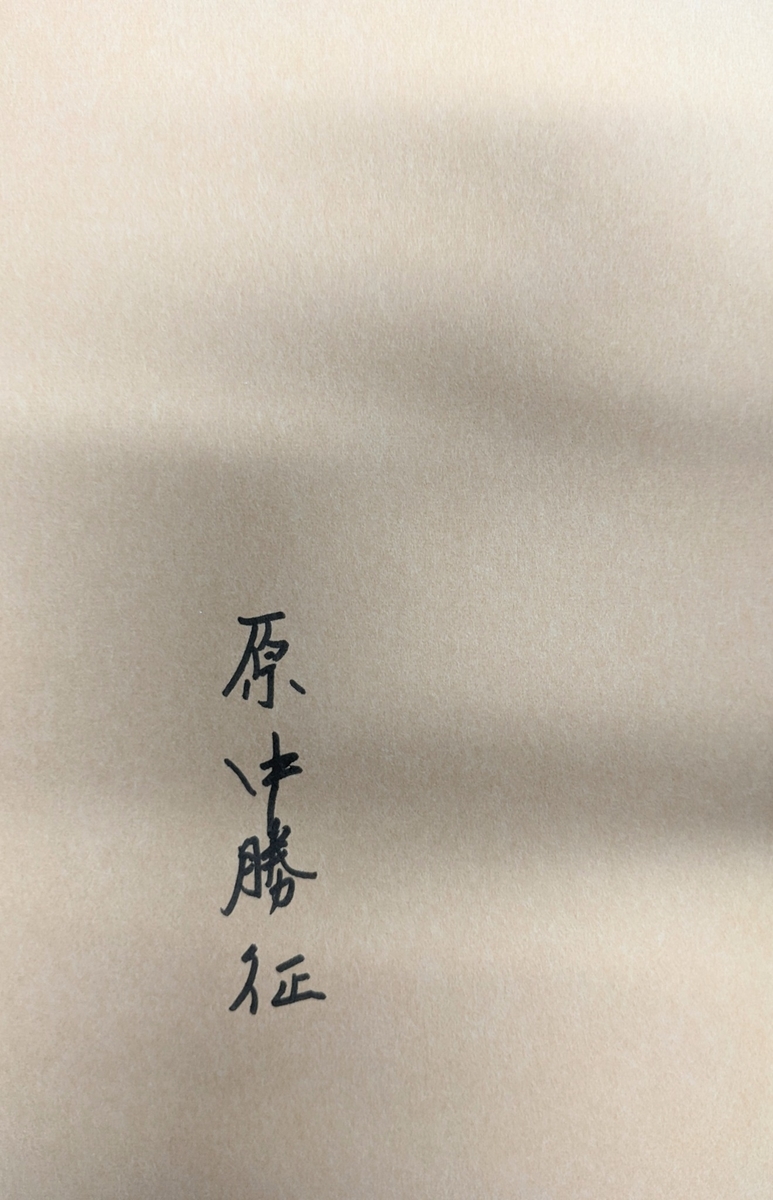 原中勝征